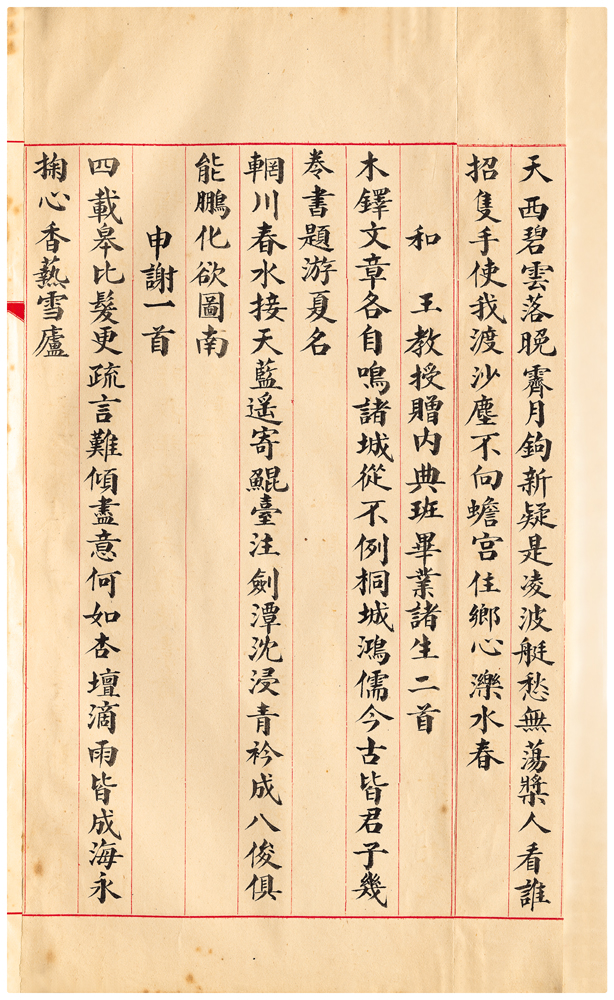 天西碧雲落晚霽月鉤新疑是凌波艇愁無蕩槳人看誰
招隻手使我渡沙塵不向蟾宮住鄉心濼水春
和　王教授贈内典班畢業諸生二首
木鐸文章各自鳴諸城從不例桐城鴻儒今古皆君子幾
卷書題游夏名
輞川春水接天藍遥寄鯤臺注劍潭沈浸青衿成八俊俱
能鵬化欲圖南
申謝一首
四載皋比髮更疏言難傾盡意何如杏壇滴雨皆成海永
掬心香爇雪廬